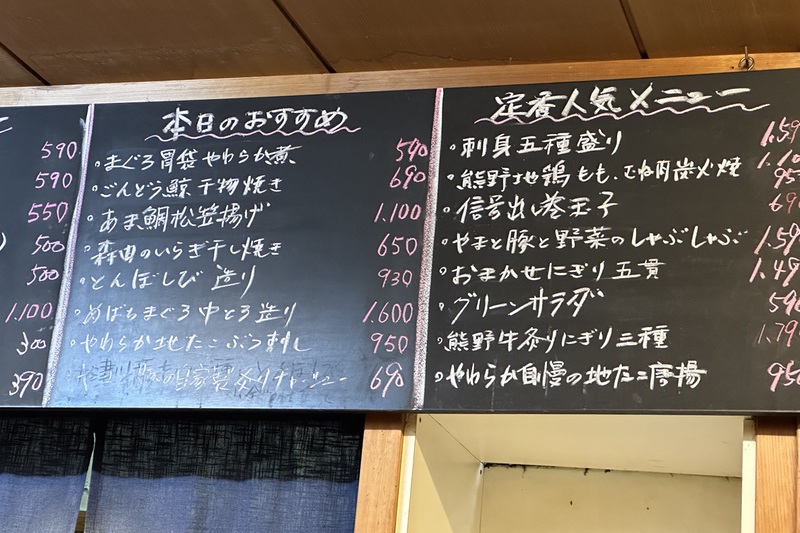 590
590
550
500
500
1.100
300
390
本日のおすすめ
・まぐろ胃袋やわらか煮 540
・ごんどう鯨干物焼き 690
・あま鯛松笠揚げ 1.100
・森由のいらぎ干し焼き 650
・とんぼしび造り 930
・めばちまぐろ中とろ造り 1.600
・やわらか地たこぶつ刺し 950
自家製炙りチャーシュー 690
定番人気メニュー
・刺身五種盛り 1.59
・熊野地鶏もも、むね肉炭火焼 1.10 95
・信号出し巻玉子 69
・やまと豚と野菜のしゃぶしゃぶ 1.59
・おまかせにぎり五貫 1.49
・グリーンサラダ 590
・熊野牛炙りにぎり三種 1.79
・やわらか自慢の地たこ唐揚 950